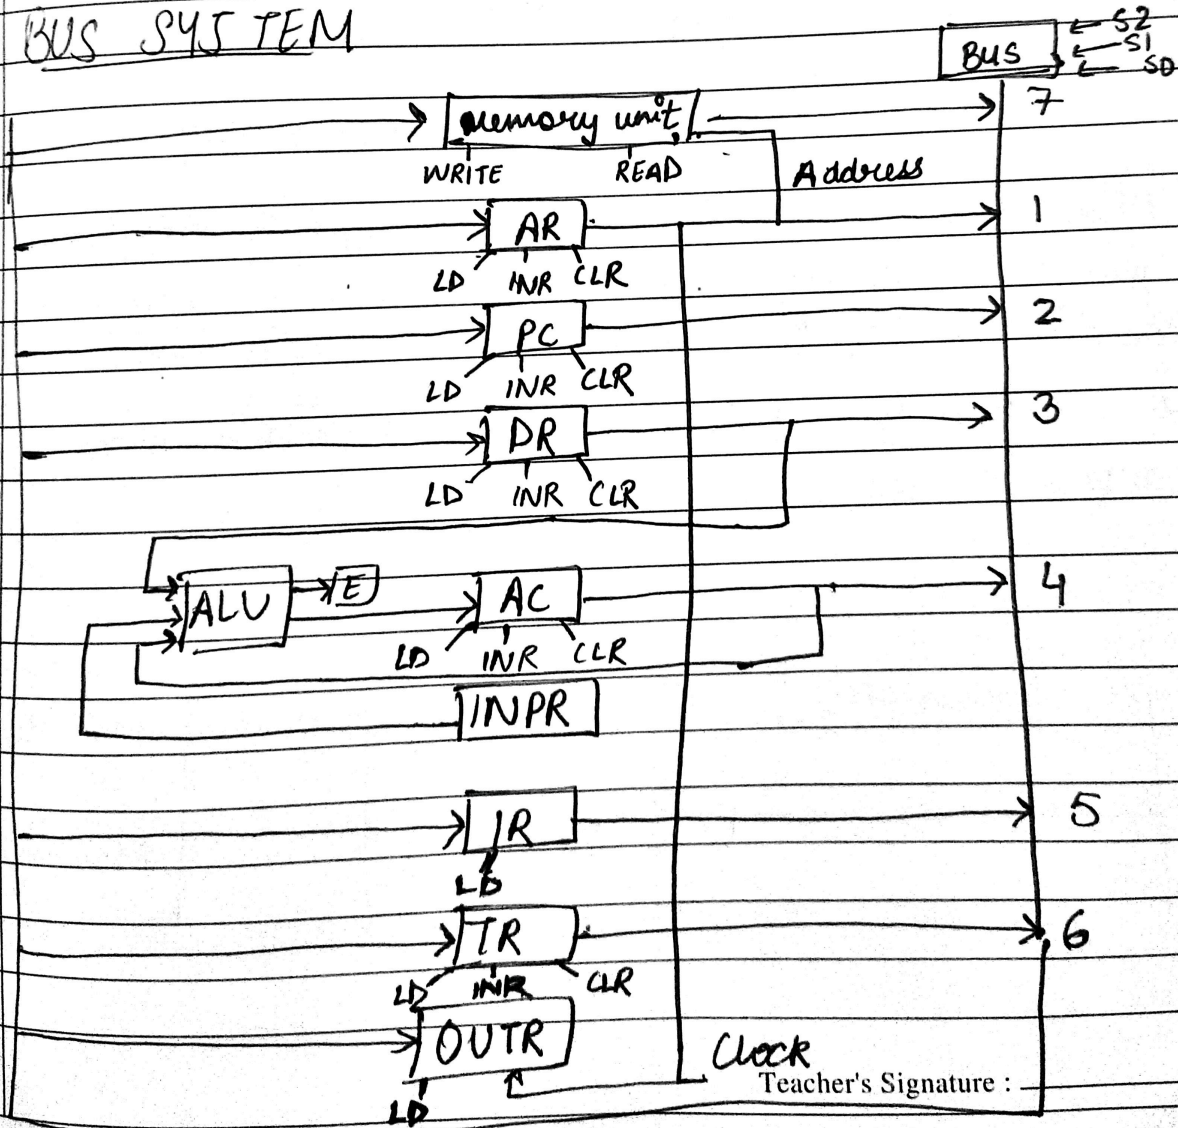 BUS SYSTEM
S2
S1
BUS
S0
7
memory unit
WRITE READ
Address
AR
1
LD INR CLR
PC
2
LD INR CLR
DR
3
LD INR CLR
ALU
E
AC
4
LD INR CLR
INPR
IR
5
LD
TR
6
LD INR CLR
OUTR
LD
Clock
Teacher's Signature :